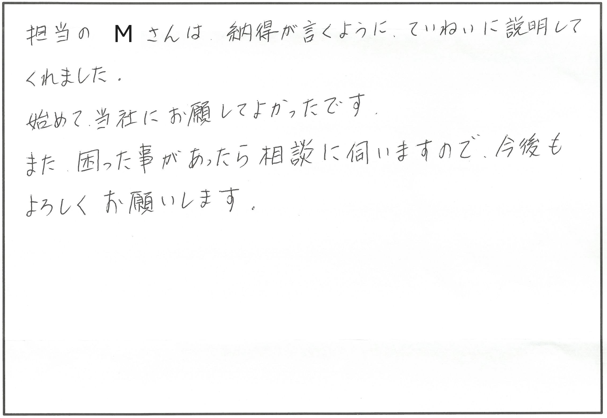 担当の Mさんは、納得が言くように、ていねいに説明して
くれました。
始めて、当社にお願してよかったです。
また、困った事があったら相談に伺いますので、今後も
よろしくお願いします。